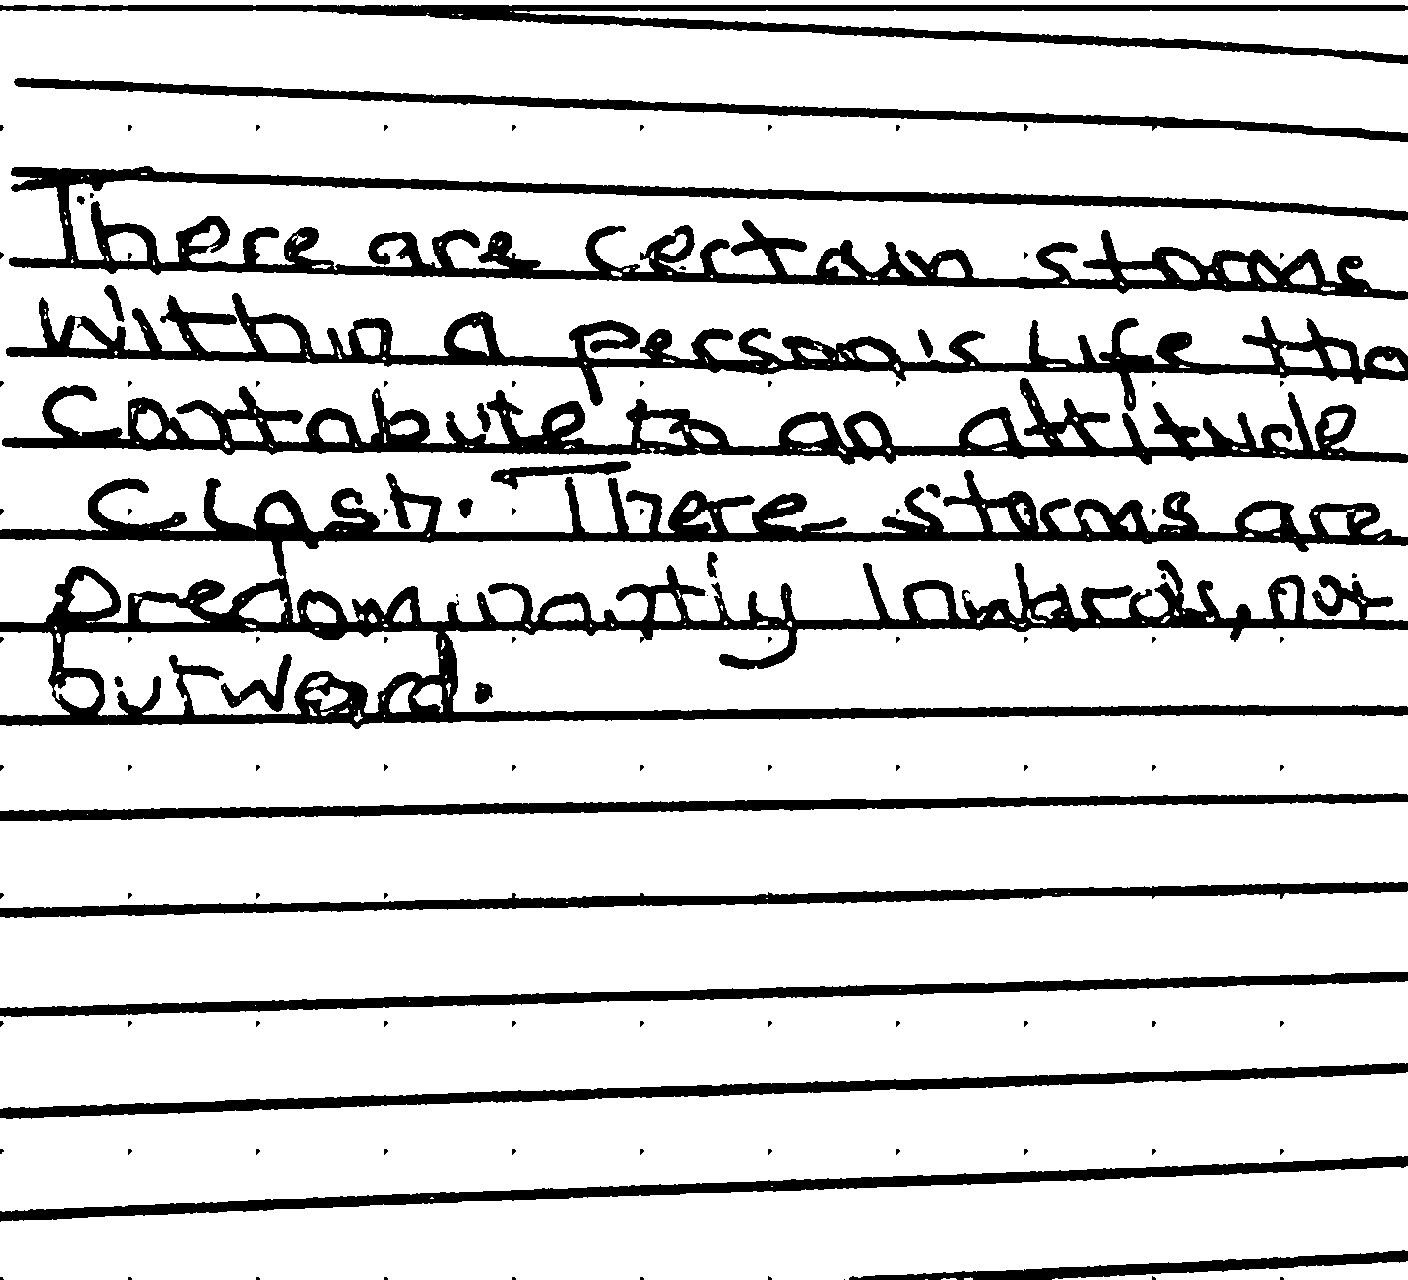 There are certain storms
within a person's life tha
contribute to an attitude
clash. There storms are
predominantly inwards, not
outward.